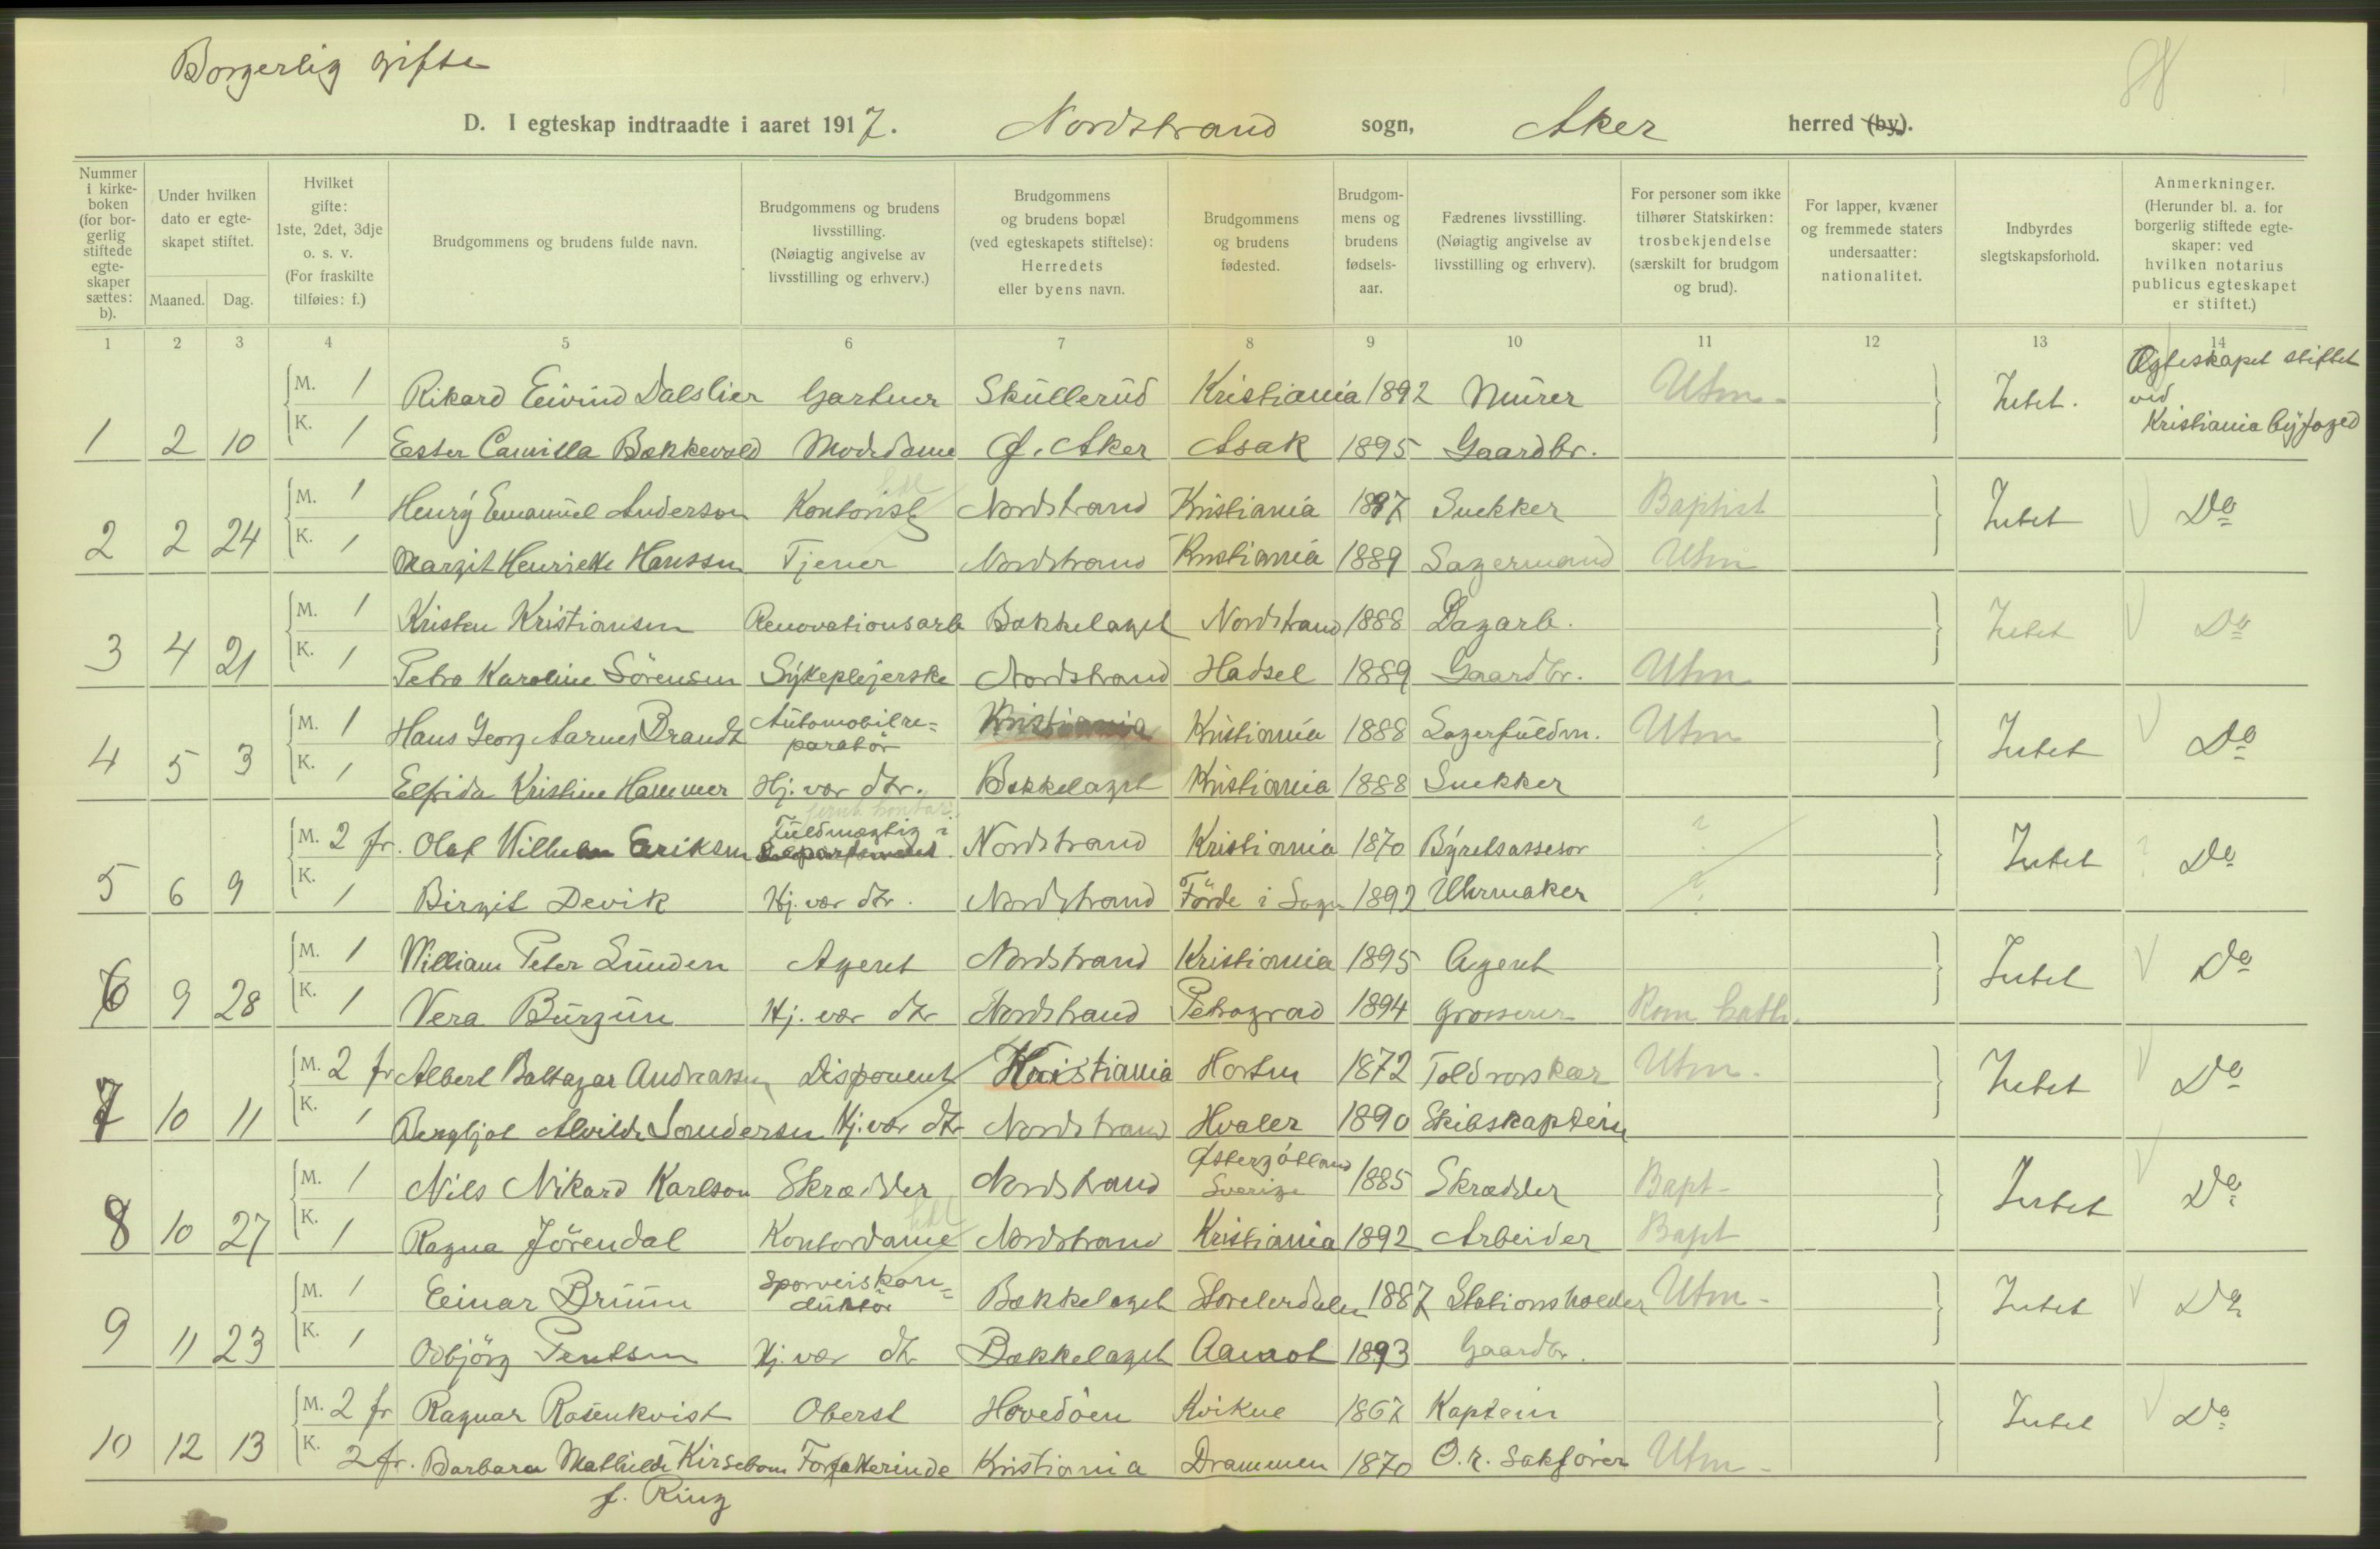 Borgerlig gifte
D. I egteskap indtraadte i aaret 1917. Nordstrand sogn, Aker herred (by).
Nummer i kirke-boken (for bor-gerlig stiftede egte-skaper sættes: b).
Under hvilken dato er egte-skapet stiftet.
Maaned. Dag.
Hvilket gifte: 1ste, 2det, 3dje o. s. v. (For fraskilte tilføies: f.)
Brudgommens og brudens fulde navn.
Brudgommens og brudens livsstilling. (Nøiagtig angivelse av livsstilling og erhverv.)
Brudgommens og brudens bopæl (ved egteskapets stiftelse): Herredets eller byens navn.
Brudgommens og brudens fødested.
Brudgom-mens og brudens fødsels-aar.
Fædrenes livsstilling. (Nøiagtig angivelse av livsstilling og erhverv).
For personer som ikke tilhører Statskirken: trosbekjendelse (særskilt for brudgom og brud).
For lapper, kvæner og fremmede staters undersaatter: nationalitet.
Indbyrdes slegtskapsforhold.
Anmerkninger. (Herunder bl. a. for borgerlig stiftede egte-skaper: ved hvilken notarius publicus egteskapet er stiftet.)
1 2 3 4 5 6 7 8 9 10 11 12 13 14
M. 1 Rikard Eivind Dalslien Gartner Skullerud Kristiania 1892 Murer Utm. Intet. Egteskapet stiftet ved Kristiania byfoged
1 2 10 K. 1 Ester Camilla Bakkevold Modedame Ø. Aker Asak 1895 Gaardbr.
M. 1 Henry Emanuel Anderson Kontorist Nordstrand Kristiania 1897 Snekker Baptist Intet Do
2 2 24 K. 1 Margit Henriette Hanssen Tjener Nordstrand Kristiania 1889 Lagermand Utm
M. 1 Kristen Kristiansen Renovationsarb Bækkelaget Nordstrand 1888 Dagarb. Intet Do
3 4 21 K. 1 Petra Karoline Sörensen Sykepleierske Nordstrand Hadsel 1889 Gaardbr. Utm
M. 1 Hans Georg Aarnes Brandt Automobilre=paratör Kristiania Kristiania 1888 Lagerfuldm. Utm Intet Do
4 5 3 K. 1 Elfrida Kristine Hammer Hj. vær. dtr. Bækkelaget Kristiania 1888 Snekker
M. 2 fr. Olaf Wilhelm Eriksen Fuldmægtig i Departementet Nordstrand Kristiania 1870 Byretsassesor ? Intet ? Do
5 6 9 K. 1 Birgit Devik Hj. vær dtr. Nordstrand Förde i Sogn 1892 Uhrmaker ?
M. 1 William Peter Lunden Agent Nordstrand Kristiania 1895 Agent Intet Do
6 9 28 K. 1 Vera Burgun Hj. vær dtr Nordstrand Petrograd 1894 Grosserer Rom kath.
M. 2 fr Albert Baltazar Andreassen Disponent Kristiania Horten 1872 Toldrorskar Utm. Intet Do
7 10 11 K. 1 Bergljot Alvilde Soudersen Hj. vær dtr Nordstrand Hvaler 1890 Skibskaptein
M. 1 Nils Nikard Karlson Skrædder Nordstrand Östergötland Sverige 1885 Skrædder Bapt. Intet Do
8 10 27 K. 1 Ragna Jörendal Kontordame Nordstrand Kristiania 1892 Arbeider Bapt
M. 1 Einar Bruun Sporveiskon=duktör Bækkelaget Storelvdalen 1887 Stationsholder Utm. Intet Do
9 11 23 K. 1 Odbjörg Bentsen Hj. vær dtr Bækkelaget Aamot 1893 Gaardbr.
M. 2 fr Ragnar Rosenkvist Oberst Hovedöen Kvikne 1867 Kaptein Intet Do
10 12 13 K. 2 fr. Barbara Mathilde Kirsebom Forfatterinde Kristiania Drammen 1870 O.r. Sakförer Utm.
f. Ring